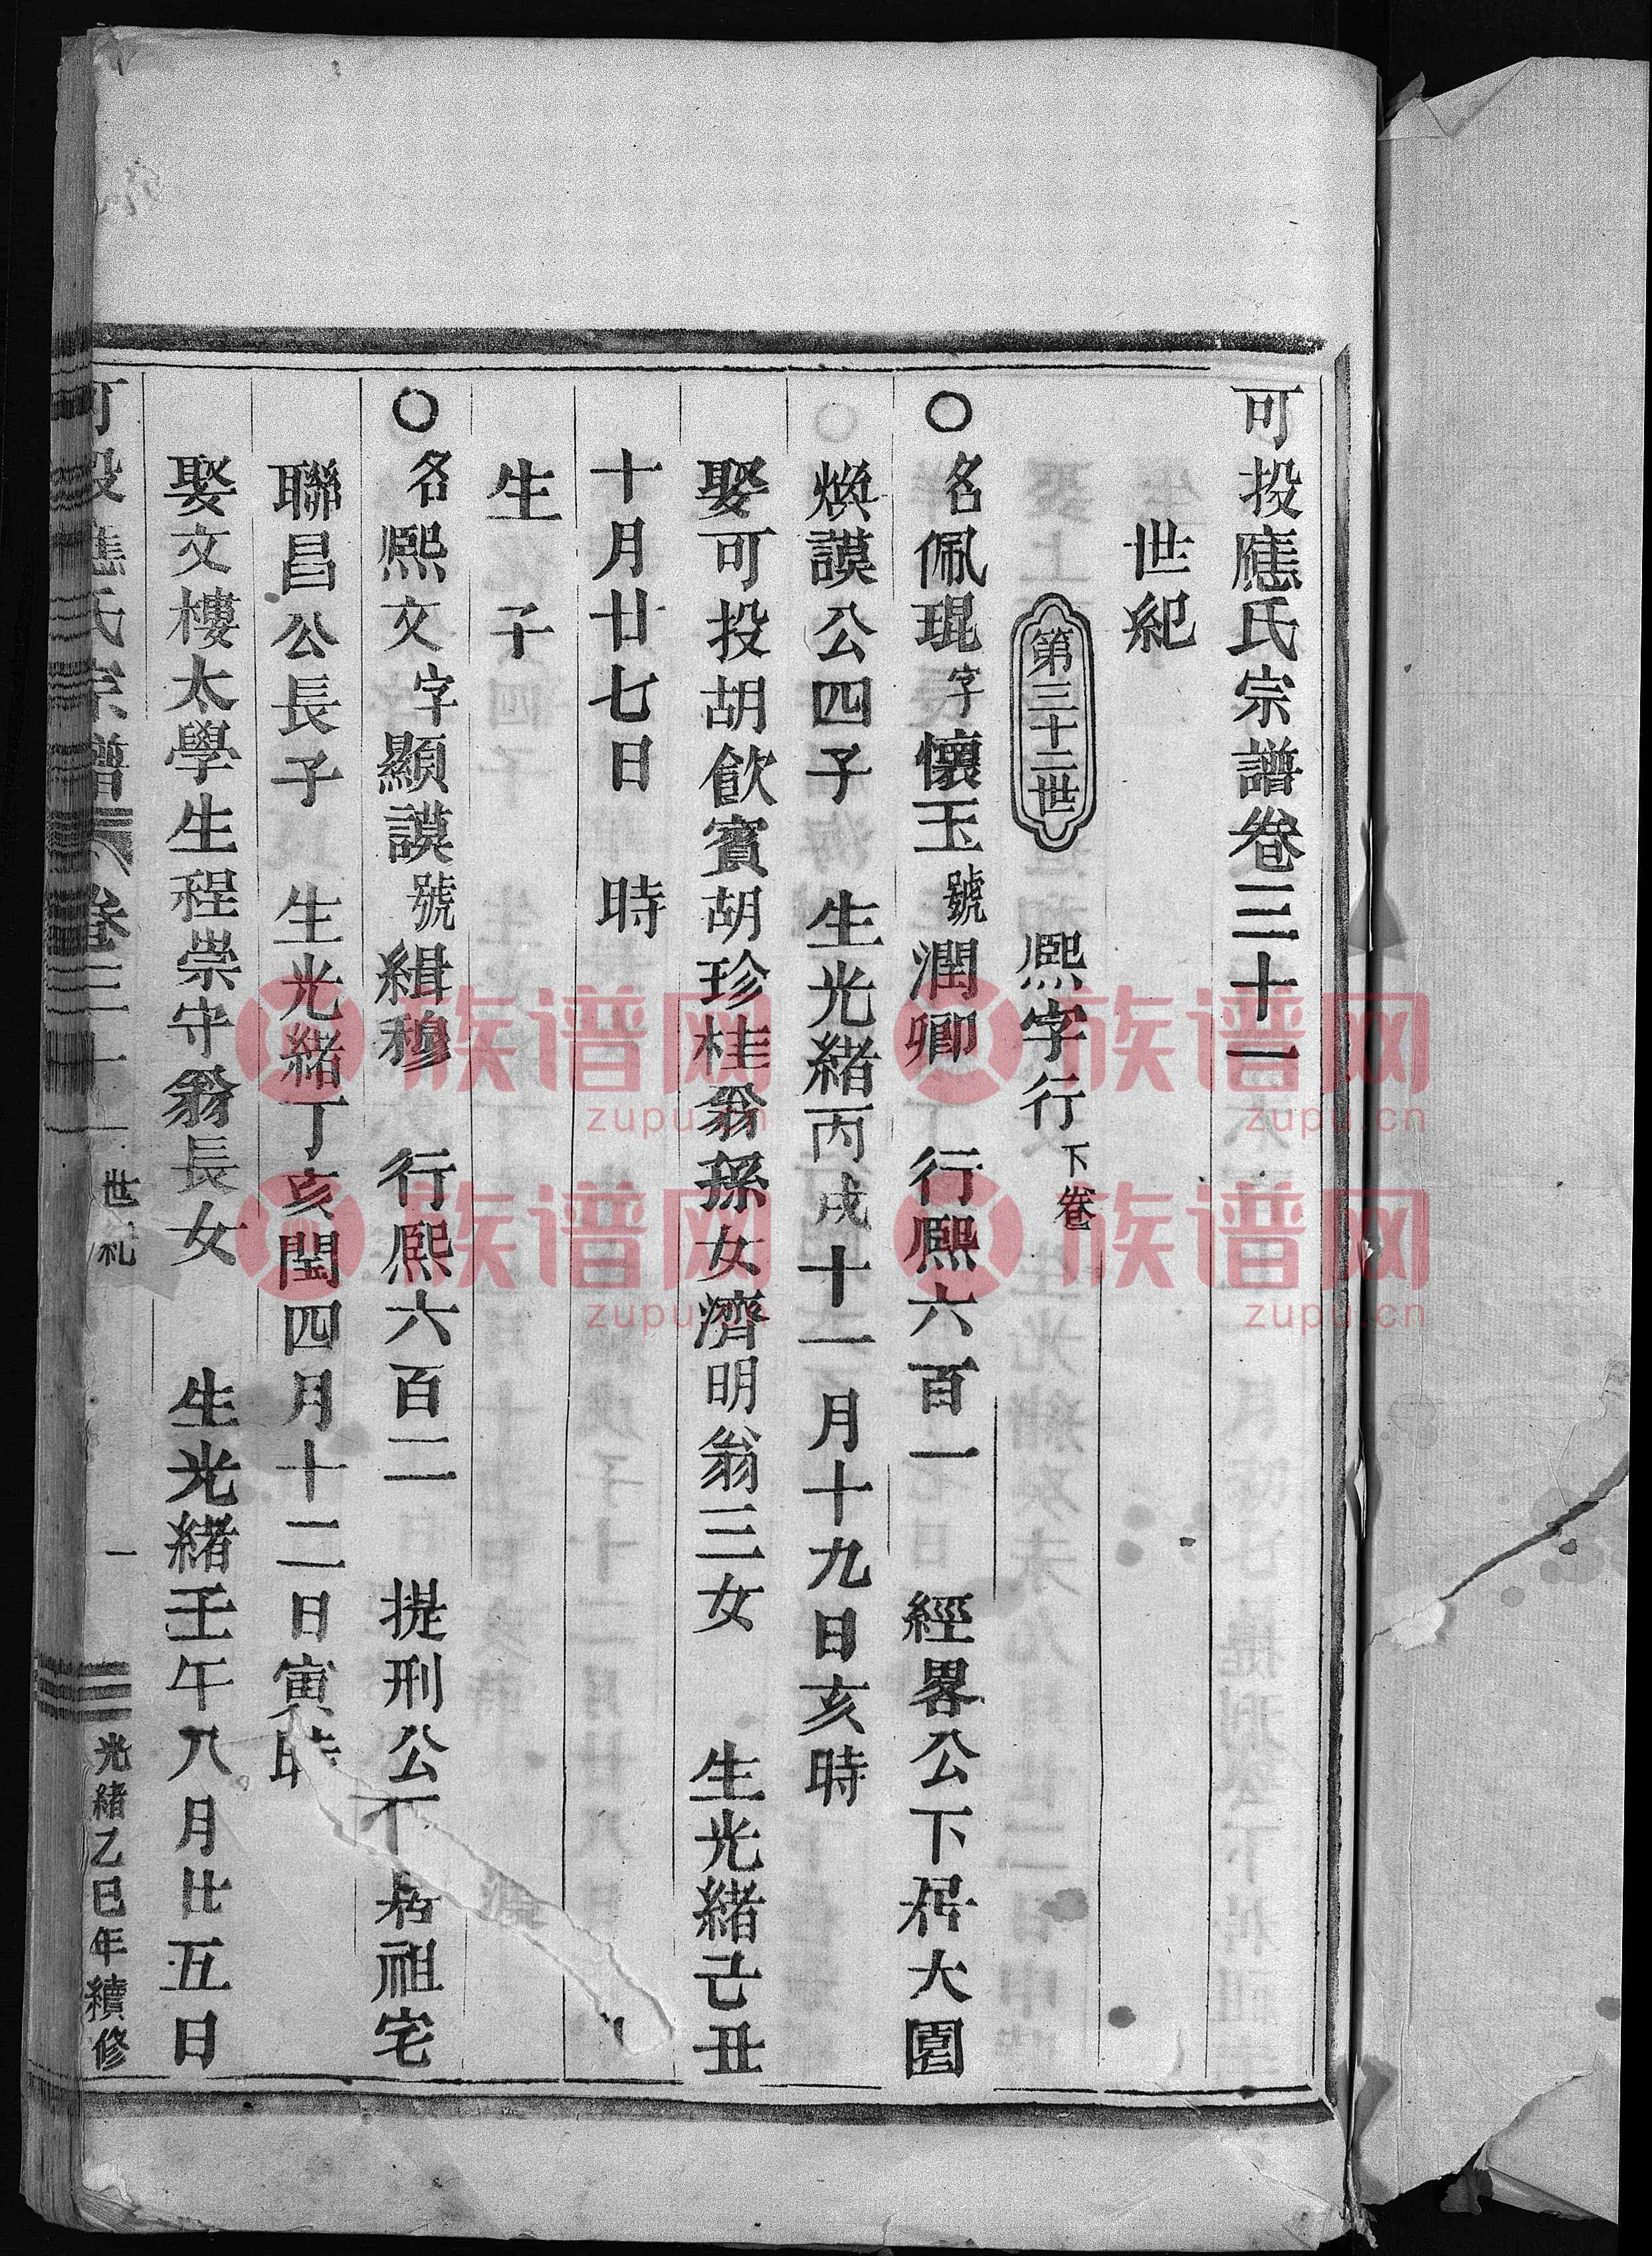 可投應氏宗譜卷三十一
世紀
第三十二世 熙字行下卷
○名佩琨字懷玉號潤卿 行熙六百一 經畧公下居大園
煥謨公四子 生光緒丙戌十一月十九日亥時
娶可投胡飲賓胡珍桂翁孫女濟明翁三女 生光緒己丑
十月廿七日 時
生 子
○名熙文字顯謨號緝穆 行熙六百二 提刑公下居祖宅
聯昌公長子 生光緒丁亥閏四月十二日寅時
娶文樓太學生程崇守翁長女 生光緒壬午八月廿五日
可投應氏宗譜 卷三十一 世系 一 光緒乙巳年續修
族谱网
zupu.cn
族谱网
zupu.cn
族谱网
zupu.cn
族谱网
zupu.cn